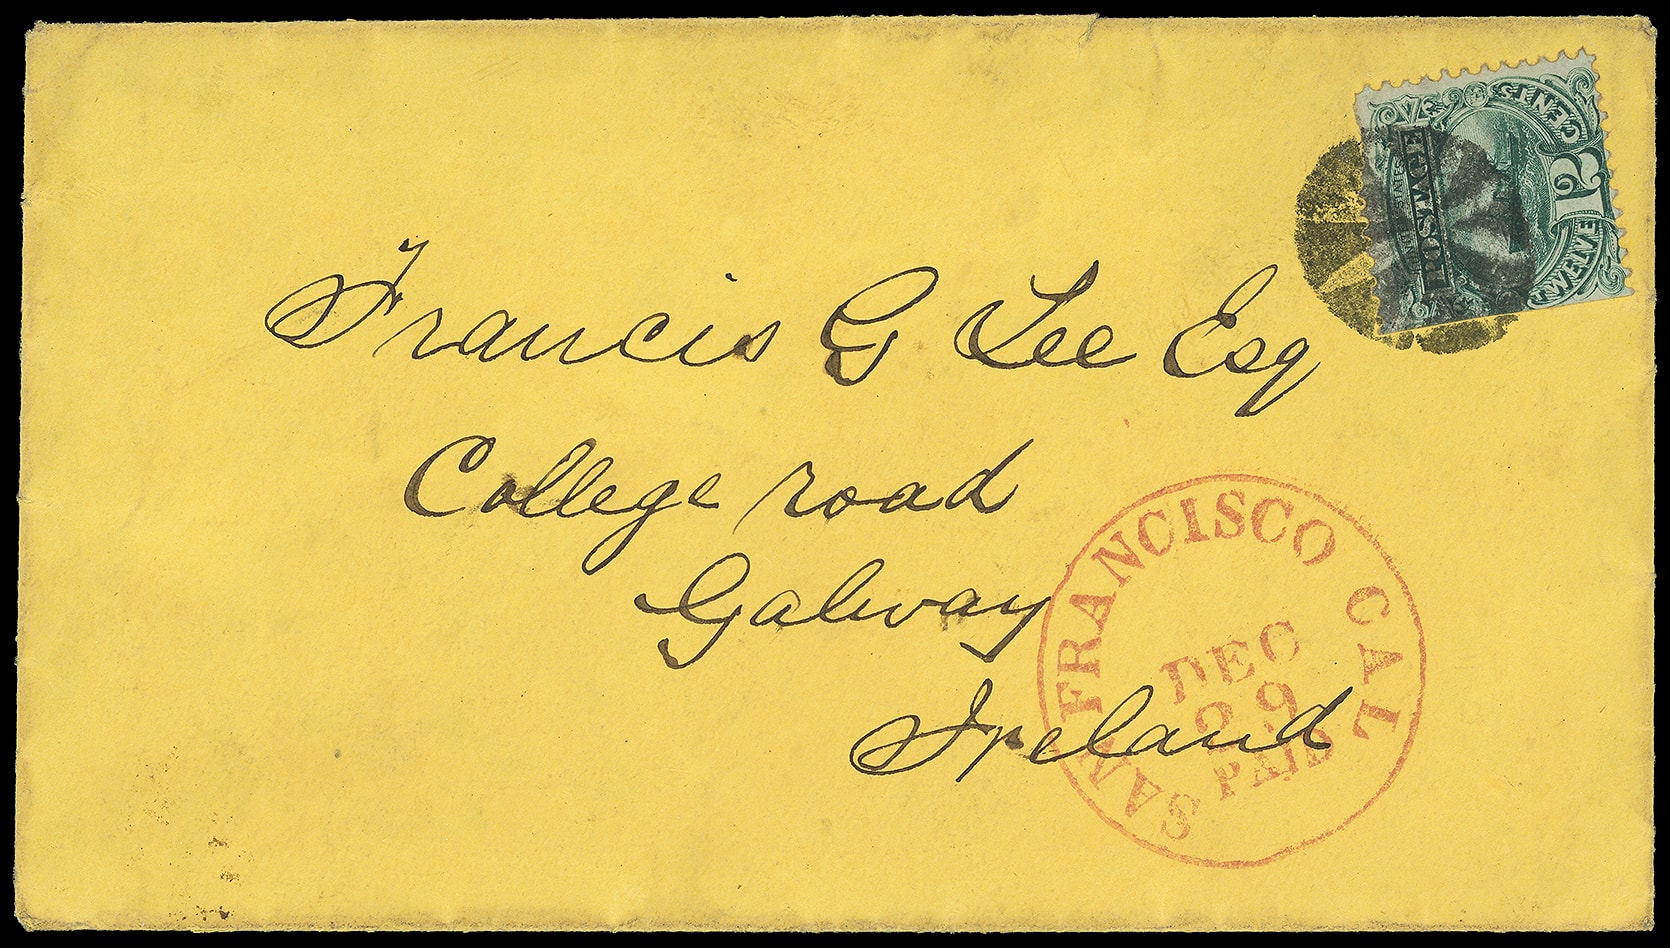 Francis G Lee Esq
College road
Galway
Ireland
SAN FRANCISCO CAL
DEC
29
PAID
POSTAGE
12
TWELVE CENTS